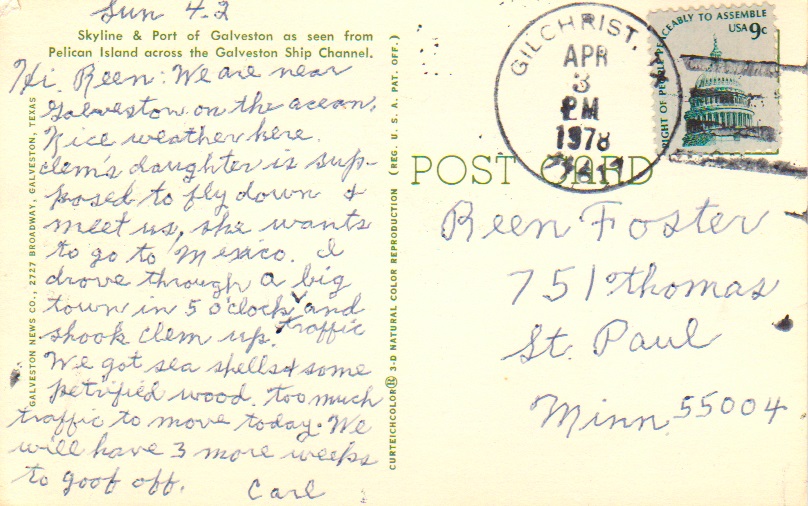 Sun 4-2
Skyline & Port of Galveston as seen from
Pelican Island across the Galveston Ship Channel.
Hi Reen: We are near
Galveston on the ocean.
Nice weather here.
Clem's daughter is sup-
posed to fly down &
meet us, she wants
to go to Mexico. I
drove through a big
town in 5 o'clock and
traffic
shook Clem up.
We got sea shells & some
petrified wood. too much
traffic to move today. We
will have 3 more weeks
to goof off.
Carl
GALVESTON NEWS CO., 2727 BROADWAY, GALVESTON, TEXAS
CURTEICHCOLOR® 3-D NATURAL COLOR REPRODUCTION (REG. U. S. A. PAT. OFF.)
POST CARD
GILCHRIST,
APR
3
PM
1978
RIGHT OF PEOPLE PEACEABLY TO ASSEMBLE
USA 9c
Reen Foster
751 Thomas
St. Paul
Minn 55004